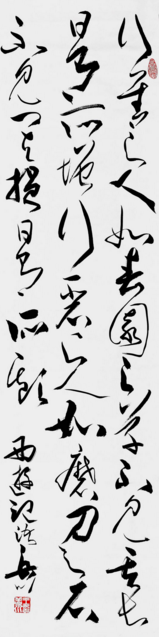 行善之人如春園之草不见其长
日有所增行恶之人如磨刀之石
不见其損日有所虧
西遊记